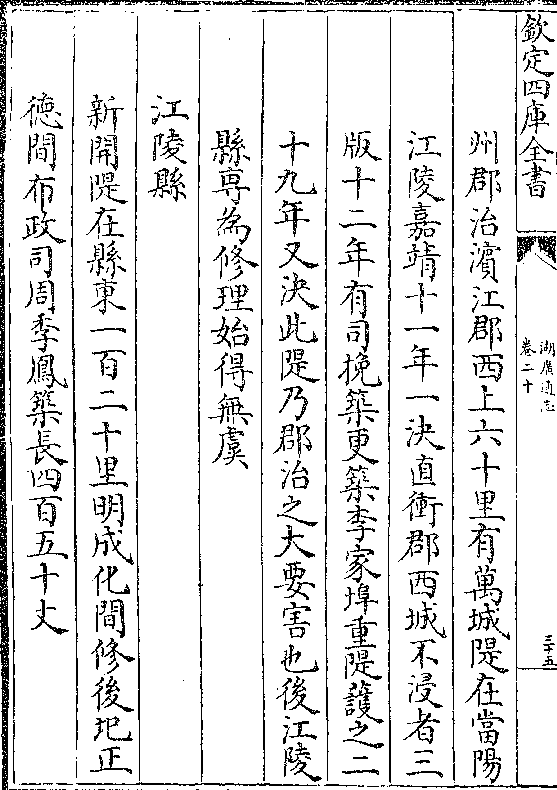 欽定四庫全書
湖廣通志
卷二十
三十五
州郡治濱江郡西上六十里有萬城隄在當陽
江陵嘉靖十一年一決直衝郡西城不浸者三
版十二年有司挽築更築李家埠重隄䕶之二
十九年又決此隄乃郡治之大要害也後江陵
縣專為修理始得無虞
江陵縣
新開隄在縣東一百二十里明成化間修後圯正
德間布政司周季鳳築長四百五十丈